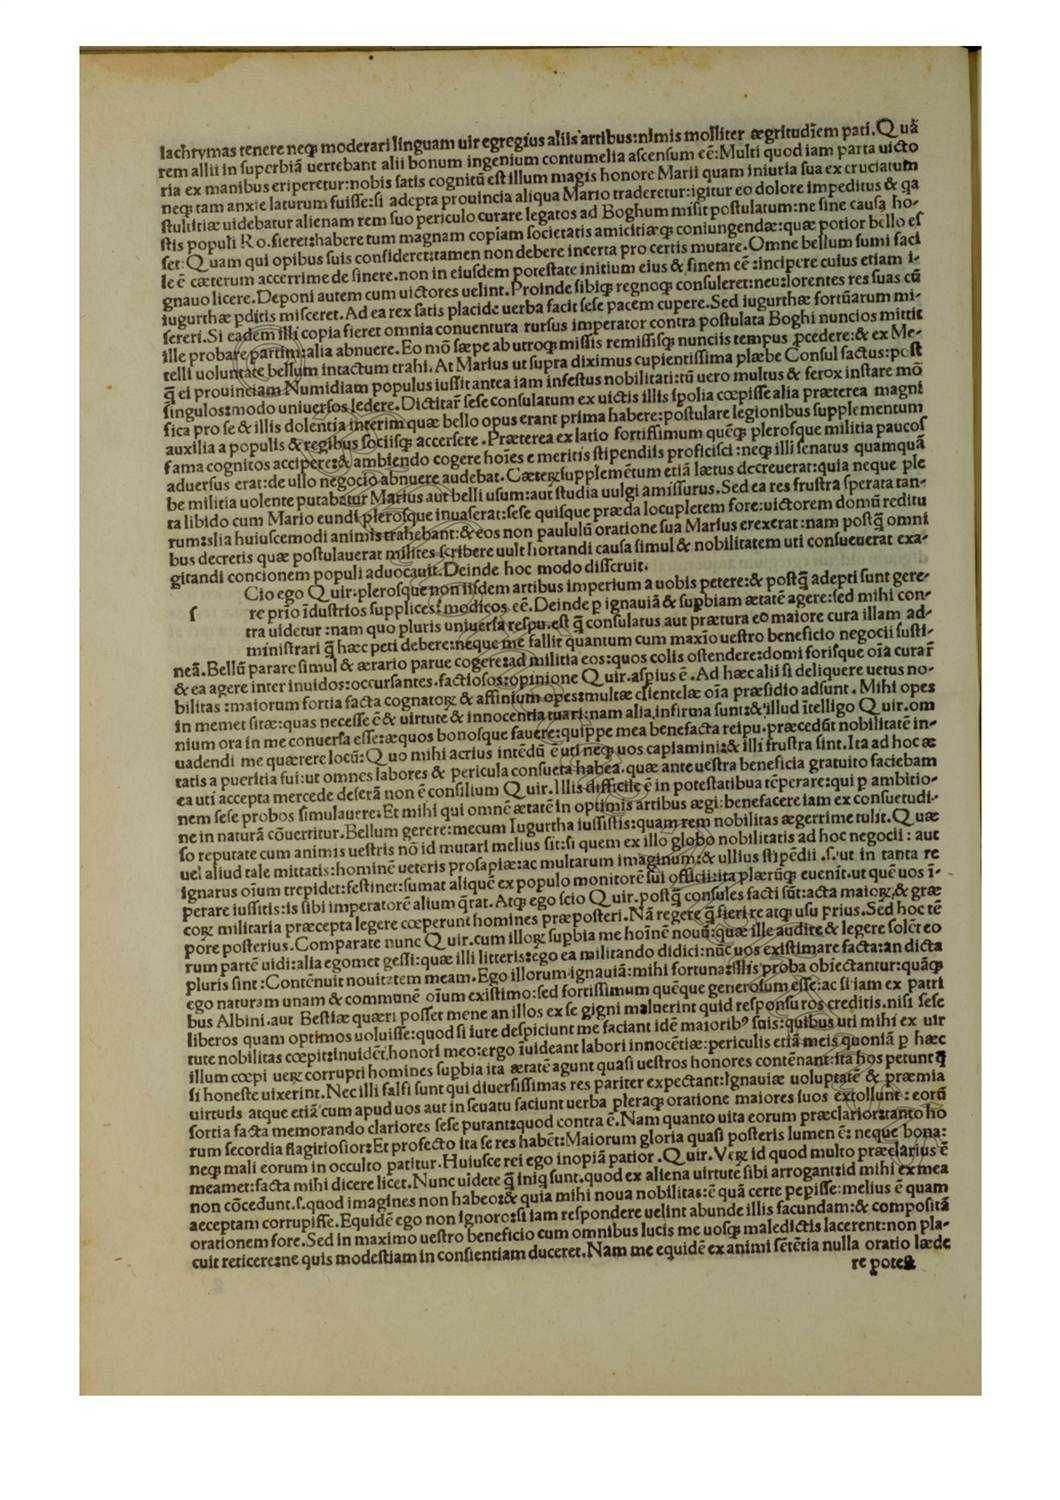 lachrymas tenere neqꝫ moderari linguam uir egregius aliis artibus:nimis molliter ægritudiem pati.Quā
rem allii in superbiā uertebant alii bonum ingenium contumelia ascensum eē:Multi quod iam parta uicto
ria ex manibus eriperetur:nobis satis cognitū est illum magis honore Marii quam iniuria sua excruciatum
neqꝫ tam anxie laturum fuisse:si adepta prouincia aliqua Mario traderetur:igitur eo dolore impeditus & qa
stultitiæ uidebatur alienam rem suo periculo curare legatos ad Boghum misit postulatum:ne sine causa ho-
stis populi Ro.fieret:habere tum magnam copiam societatis amicitiæqꝫ coniungendæ:quæ potior bello es
set:Quam qui opibus suis confideret:tamen non debere incerta pro certis mutare.Omne bellum sumi faci
le ē cæterum acerrime de sinere.non in eiusdem potestate initium eius & finem eē:incipere cuius etiam i-
gnauo licere.Deponi autem cum uictores uelint.Proinde sibiqꝫ regnoqꝫ consuleret:neu:lorentes res suas cū
iugurthæ ꝑditis misceret.Ad ea rex satis placide uerba facit sese pacem cupere.Sed iugurthæ fortūarum mi-
sereri.Si eadem illi copia fieret omnia conuentura rursus imperator contra postulata Boghi nuncios mittit
ille probare partim:alia abnuere.Eo mō sæpe ab utroqꝫ missis remissisqꝫ nunciis tempus ꝓcedere:& ex Me-
telli uoluntate bellum intactum trahi.At Marius ut supra diximus cupientissima plæbe Consul factus:post
q̄ ei prouinciam Numidiam populus iussit antea iam infestus nobilitati:tū uero multus & ferox instare mō
singulos:modo uniuersos ledere.Dictitar̄ sese consulatum ex uictis illis spolia cœpisse alia præterea magni
fica pro se & illis dolentia interim quæ bello opus erant prima habere:postulare legionibus supplementum
auxilia a populis & regibus sociisqꝫ accersere.Præterea ex latio fortissimum quēqꝫ plerosque militia paucos
fama cognitos accipere:& ambiendo cogere hoīes emeritis stipendiis proficisci:neqꝫ illi senatus quamquā
aduersus erat:de ullo negocio abnuere audebat.Cæteꝝ supplemētum etiā lætus decreuerat:quia neque ple
be militia uolente putabatur Marius aut belli usum:aut studia uulgi amissurus.Sed ea res frustra sperata tan-
ta libido cum Mario eundi plerosque inuaserat:sese quisque præda locupletem fore:uictorem domū reditu
rum:slia huiuscemodi animis trahebant:& eos non paululū oratione sua Marius erexerat:nam postq̄ omni
bus decretis quæ postulauerat milites scribere uult hortandi causa simul & nobilitatem uti consueuerat exa-
gitandi concionem populi aduocauit.Deinde hoc modo disseruit.
Cio ego Quir.plerosque non iisdem artibus imperium a uobis petere:& postq̄ adepti sunt gere-
s re prīo īdustrios supplices:modicos eē.Deinde ꝑ ignauiā & suꝑbiam ætatē agere:sed mihi con-
tra uidetur:nam quo pluris uniuersa respu.est q̄ consulatus aut prætura eo maiore cura illam ad-
ministrari q̄ hæc peti debere:neque me fallit quantum cum maxīo uestro beneficio negocii susti-
neā.Bellū parare simul & ærario parue cogere:ad militia eos:quos colis ostendere:domi forisque oīa curar̄
& ea agere inter inuidos:occursantes.factiosos:opinione Quir.aspius ē.Ad hæc alii si deliquere uetus no-
bilitas:maiorum fortia facta cognatoꝝ & affinium opes:multæ clientelæ oīa præsidio adsunt.Mihi opes
in memet sitæ:quas necesse ē & uirtute & innocentia tuari:nam alia infirma sunt:& illud ītelligo Quir.om
nium ora in me conuersa esse:æquos bonosque fauere:quippe mea benefacta reipu.præcedūt nobilitatē in-
uadendi me quærere locū:Quo mihi acrius intēdū ē uti neqꝫ uos capiamini:& illi frustra sint.Ita ad hoc æ
tatis a pueritia fui:ut omnes labores & pericula consueta habeā.quæ ante uestra beneficia gratuito faciebam
ea uti accepta mercede deserā non ē consilium Quir.Illis difficile ē in potestatibus tēperare:qui ꝑ ambitio-
nem sese probos simulauere.Et mihi qui omnē ætatē in optimis artibus ægi:benefacere iam ex consuetudi-
ne in naturā cōuertitur.Bellum gerere:mecum Iugurtha iussistis:quam rem nobilitas ægerrime tulit.Quæ
so reputate cum animis uestris nō id mutari melius sit:si quem ex illo globo nobilitatis ad hoc negocii:aut
uel aliud tale mittatis:hominē ueteris prosapiæ:ac multarum imaginum:& ullius stipēdii.s.ut in tanta re
ignarus oīum trepidet:festinet:sumat aliquē ex populo monitorē sui officii:ita plærūqꝫ euenit.ut quē uos ī-
perare iussitis:is sibi imperatorē alium q̄rat.Atqꝫ ego scio Quir.postq̄ consules facti sūt:acta maioꝝ & græ
coꝝ militaria præcepta legere cœperunt homines præposteri.Nā regere q̄ fieri re atqꝫ usu prius.Sed hoc tē
pore posterius.Comparate nunc Quir.cum illoꝝ suꝑbia me hoīnē nouū:quæ ille audire & legere solet eo
rum partē uidi:alia egomet gessi:quæ illi litteris:ego ea militando didici:nūc uos existimare facta:an dicta
pluris sint:Contēnuit nouitatem meam.Ego illorum ignauiā:mihi fortuna:illis proba obiectantur:quāqꝫ
ego naturam unam & communē oīum existimo:sed fortissimum quēque generosum esse:ac si iam ex patri
bus Albini.aut Bestiæ quæri posset mene an illos ex se gigni maluerint quid responsuros creditis.nisi sese
liberos quam optimos uoluisse:quod si iure despiciunt me faciant idē maioribꝰ suis:quibus uti mihi ex uir
tute nobilitas cœpit:inuidēt honori meo:ergo īuideant labori innocētiæ:periculis etiā meis quoniā ꝑ hæc
illum cœpi ueꝝ corrupti homines suꝑbia ita ætatē agunt quasi uestros honores contēnant:ita hos petunt q̄
si honeste uixerint.Nec illi falsi sunt qui diuersissimas res pariter expectant:Ignauiæ uoluptatē & præmia
uirtutis atque etiā cum apud uos aut in seuatu faciunt uerba pleraqꝫ oratione maiores suos extollunt:eorū
fortia facta memorando clariores sese putant:quod contra ē.Nam quanto uita eorum præclarior:tanto ho
rum secordia flagitiosior:Et profecto ita se res habēt:Maiorum gloria quasi posteris lumen ē:neque bona:
neqꝫ mali eorum in occulto patitur.Huiusce rei ego inopiā patior.Quir.Veꝝ id quod multo præclarius ē
meamet:facta mihi dicere licet.Nunc uidete q̄ iniq sunt.quod ex aliena uirtute sibi arrogant:id mihi ex mea
non cōcedunt.s.quod imagines non habeo:& quia mihi noua nobilitas:ē quā certe pepisse:melius ē quam
acceptam corrupisse.Equidē ego non ignoro:si iam respondere uelint abunde illis facundam:& compositā
orationem fore.Sed in maximo uestro beneficio cum omnibus lucis me uosqꝫ maledictis lacerent:non pla-
cuit reticere:ne quis modestiam in consientiam duceret.Nam me equidē ex animi sētētia nulla oratio læde
re potest